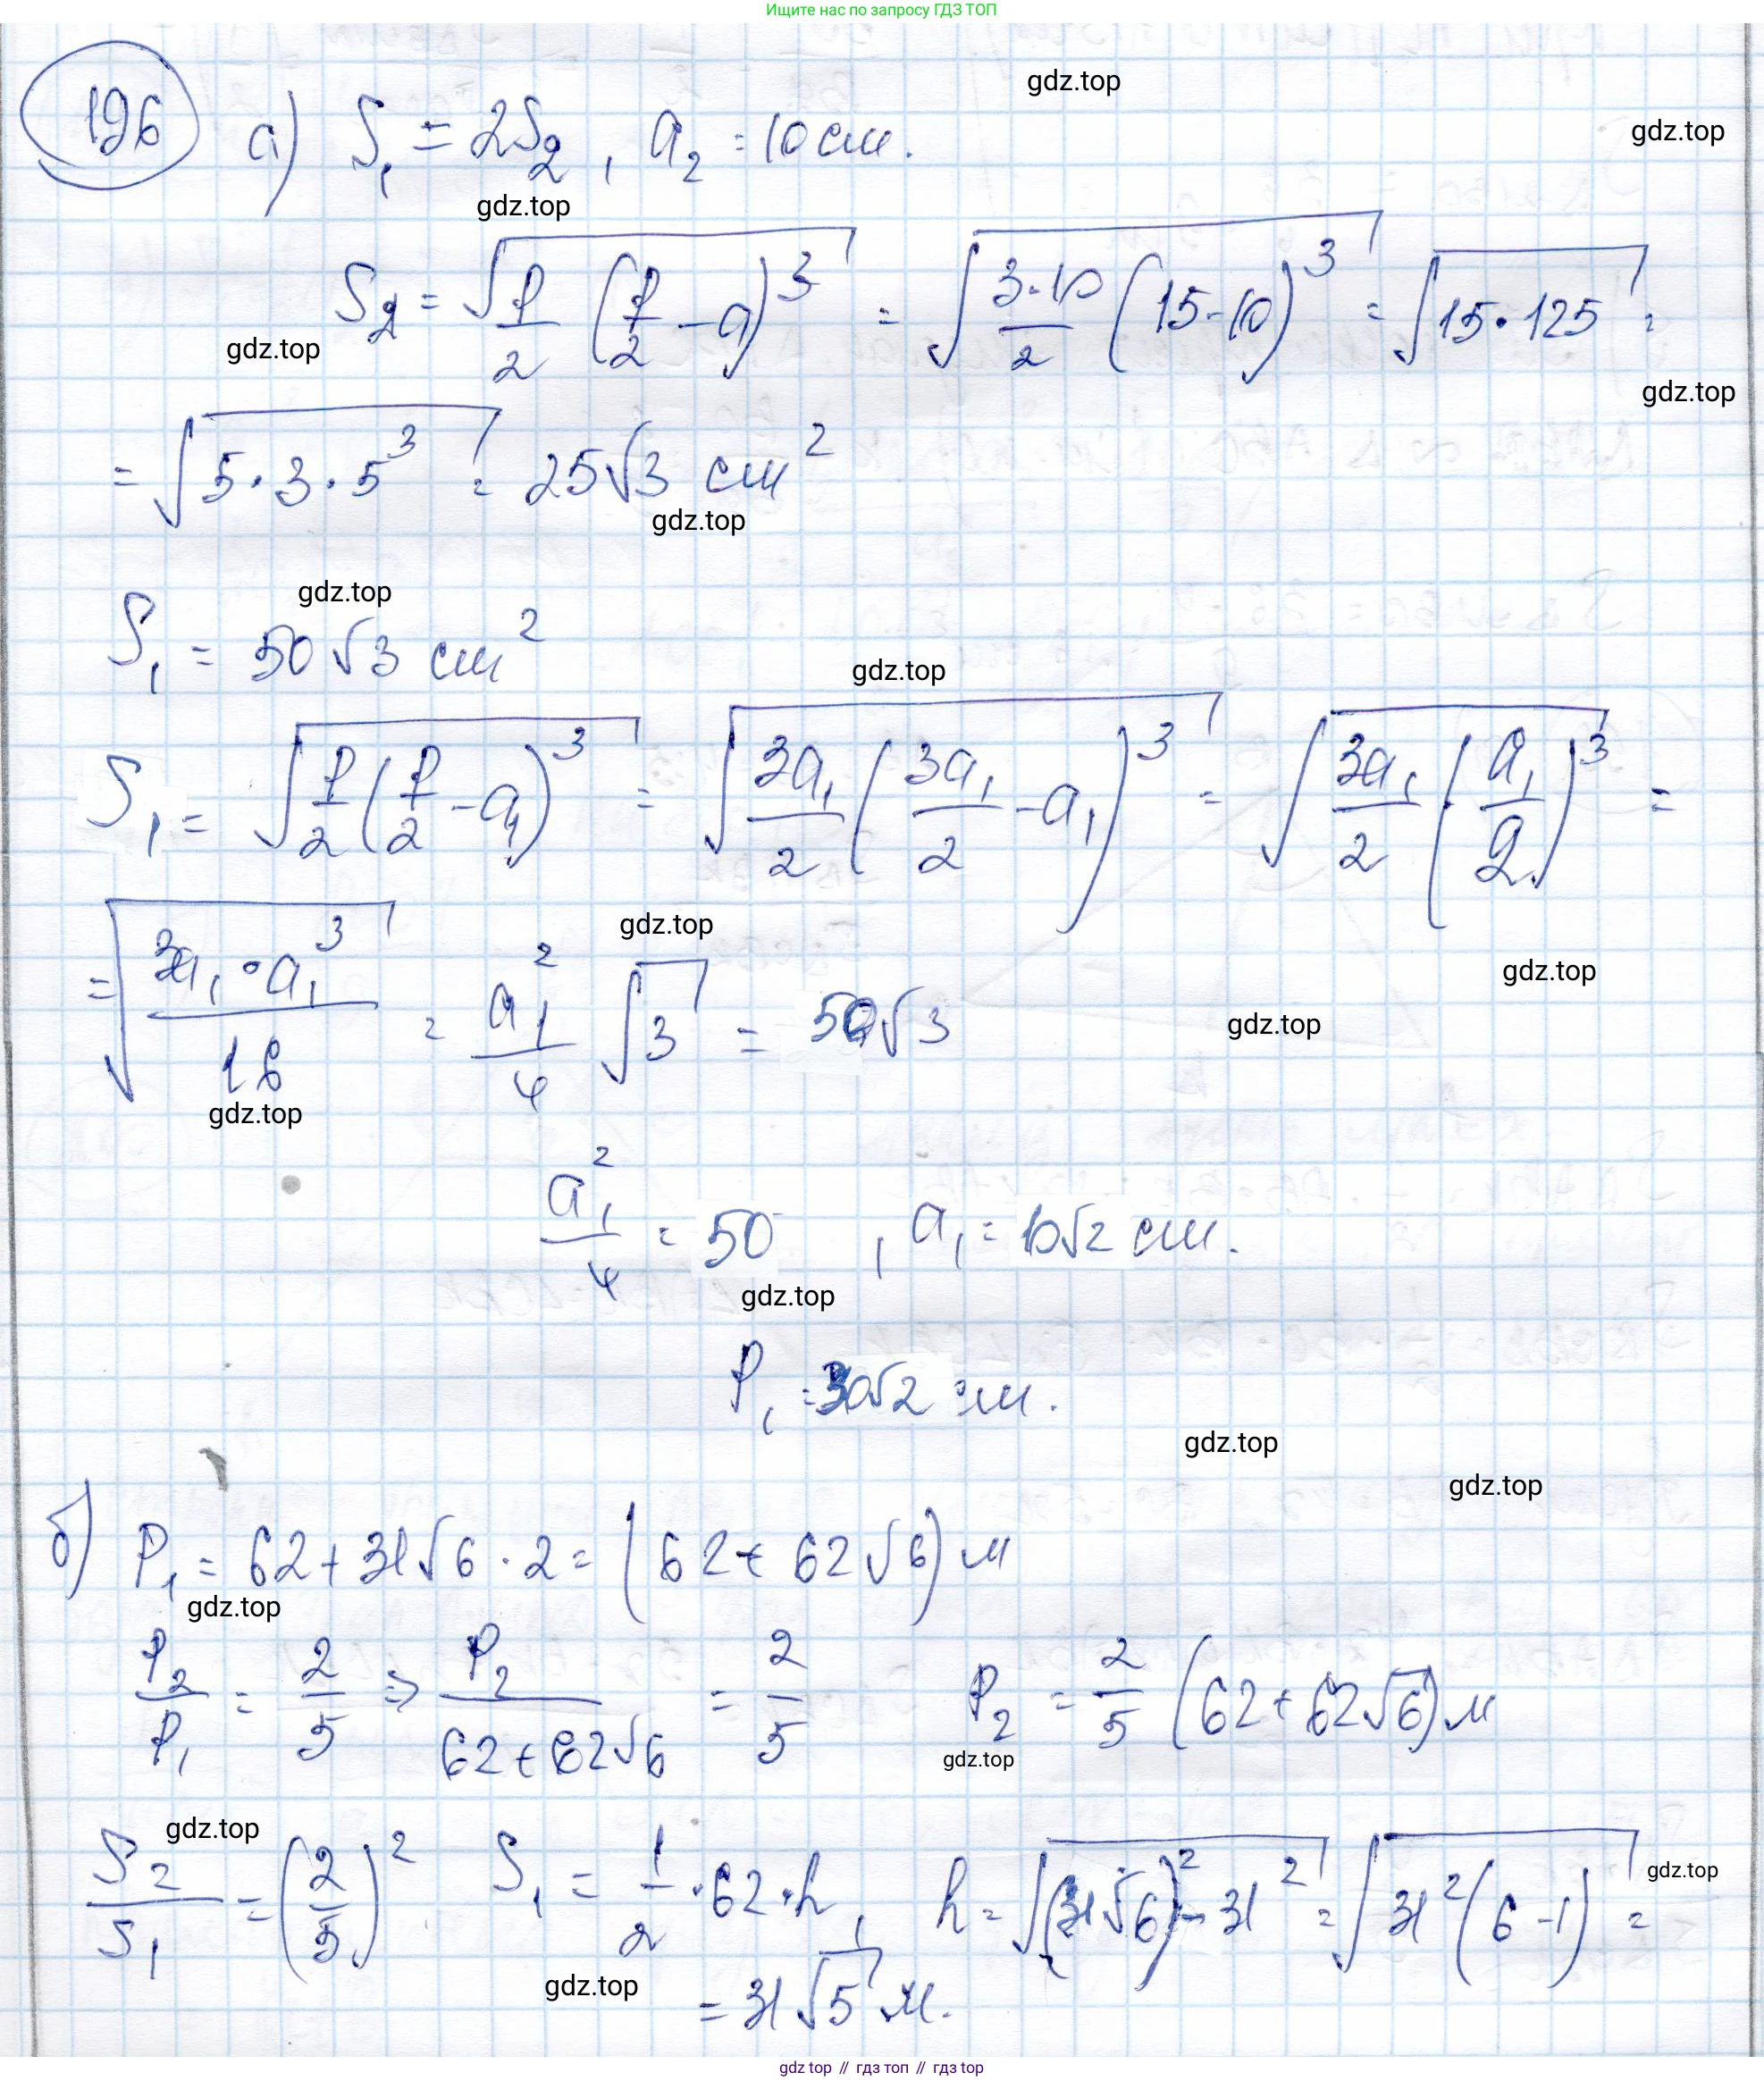 Ищите нас по запросу ГДЗ ТОП
gdz.top
196 а) S₁ = 2S₂, a₂ = 10 см.
gdz.top
gdz.top
S₂ = √(P/2 (P/2 - a)³) = √(3·10/2 (15-10)³) = √(15·125) =
gdz.top
gdz.top
= √(5·3·5³) = 25√3 см²
gdz.top
gdz.top
S₁ = 50√3 см²
gdz.top
S₁ = √(P/2 (P/2 - a₁)³) = √(3a₁/2 (3a₁/2 - a₁)³) = √(3a₁/2 (a₁/2)³) =
gdz.top
= √(3a₁·a₁³/16) = a₁²/4 √3 = 50√3
gdz.top
gdz.top
gdz.top
a₁²/4 = 50, a₁ = 10√2 см.
gdz.top
P₁ = 30√2 см.
gdz.top
gdz.top
б) P₁ = 62 + 31√6 · 2 = (62 + 62√6) м
gdz.top
P₂/P₁ = 2/5 ⇒ P₂/(62 + 62√6) = 2/5 P₂ = 2/5 (62 + 62√6) м
gdz.top
gdz.top
S₂/S₁ = (2/5)² S₁ = 1/2 · 62 · h, h = √((31√6)² - 31²) = √(31²(6-1)) =
gdz.top
gdz.top
= 31√5 м.
gdz top // гдз топ // gdz top